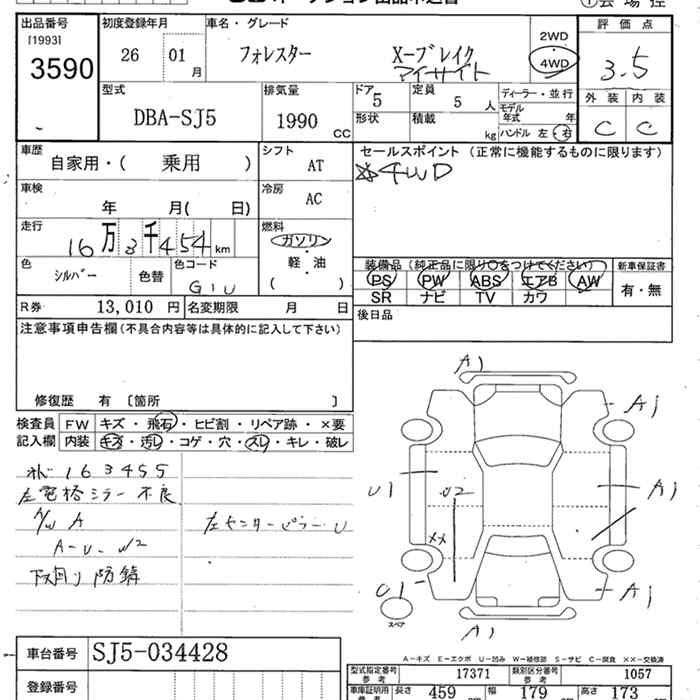 出品番号
[1993]
3590
初度登録年月
26 01
月
車名・グレード
フォレスター X-ブレイク
アイサイト
2WD
4WD
評価点
3.5
外装 内装
C C
型式
DBA-SJ5
排気量
1990 CC
ドア 5
形状
定員 5 人
積載 kg
ディーラー・並行
モデル年式 年
ハンドル 左・右
車歴
自家用・( 乗用 )
シフト
AT
セールスポイント (正常に機能するものに限ります)
※4WD
車検
年 月( 日)
冷房
AC
走行
16万3千454km
燃料
ガソリン
軽・油
( )
色
シルバー
色替
色コード
G1U
装備品 (純正品に限り○をつけてください)
新車保証書
PS PW ABS エアB AW
SR ナビ TV カワ
有・無
R券 13,010 円
名変期限 月 日
後日品
注意事項申告欄(不具合内容等は具体的に記入して下さい)
修復歴 有 〔箇所 〕
検査員
記入欄
FW キズ・飛石・ヒビ割・リペア跡・×要
内装 キズ・汚レ・コゲ・穴・スレ・キレ・破レ
163455
左電格ミラー不良
A/W A
A-U-W2
下回り防錆
左センターピラーU
A1
A1
U1
U2
A1
XX
U1
A1
スペア
A1
A-キズ E-エクボ U-凹み W-補修跡 S-サビ C-腐食 ××-交換済
車台番号 SJ5-034428
登録番号
型式指定番号
参考
17371
類別区分番号
参考
1057
車庫証明用
参考
長さ 459 幅 179 高さ 173